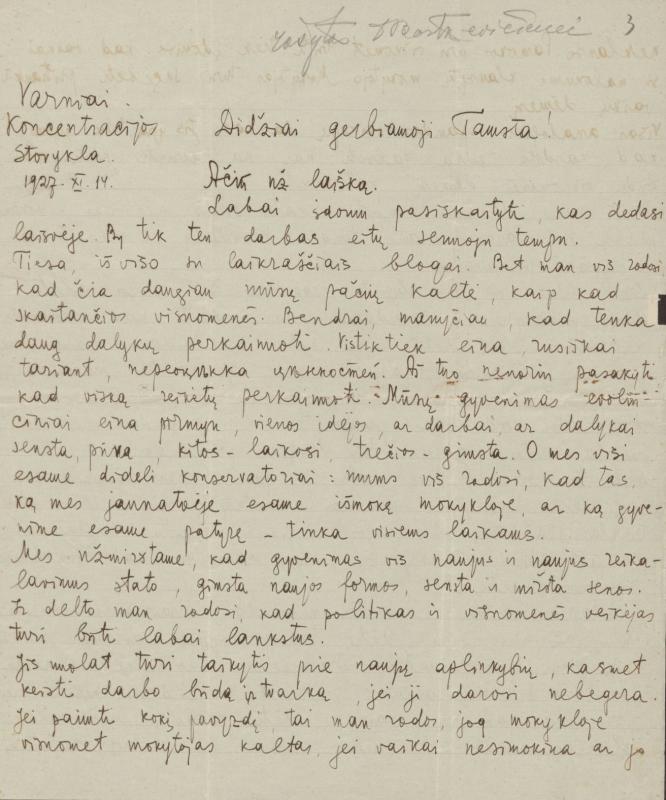 rašytas Bortkevičienei 3
Varniai.
Koncentracijos Didžiai gerbiamoji Tamsta!
Stovykla.
1927. XI. 14. Ačiū už laišką.
Labai įdomu pasiskaityti, kas dedasi
laisvėje. By tik ten darbas eitų senuoju tempu.
Tiesa, iš viso su laikraščiais blogai. Bet man vis rodosi
kad čia daugiau mūsų pačių kaltė, kaip kad
skaitančios visuomenės. Bendrai, manyčiau, kad tenka
daug dalykų perkainuoti. Vistiktiek eina, rusiškai
tariant, переоцѣнка цѣнностей. Aš tuo nenoriu pasakyti
kad viską reikėtų perkainuoti. Mūsų gyvenimas evoliu-
ciniai eina pirmyn, vienos idėjos, ar darbai, ar dalykai
sensta, pūva, kitos - laikosi, trečios - gimsta. O mes visi
esame dideli konservatoriai: mums vis rodosi, kad tas,
ką mes jaunatvėje esame išmokę mokykloje, ar ką gyve-
nime esame patyrę - tinka visiems laikams.
Mes užmirštame, kad gyvenimas vis naujus ir naujus reika-
lavimus stato, gimsta naujos formos, sensta ir miršta senos.
Ir delto man rodosi, kad politikas ir visuomenės veikėjas
turi būti labai lankstus.
Jis nuolat turi taikytis prie naujų aplinkybių, kasmet
keisti darbo būdą ir tvarką, jei ji darosi nebegera.
Jei paimti kokį pavyzdį, tai man rodos, jog mokykloje
visuomet mokytojas kaltas, jei vaikai nesimokina ar jo